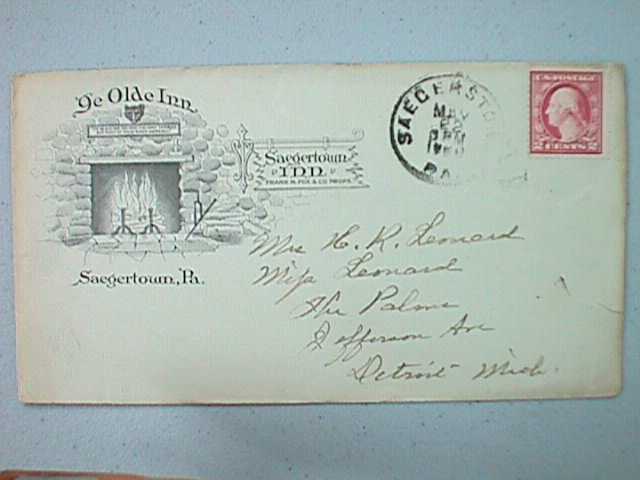 Ye Olde Inn
Saegertown
INN
FRANK M. FOX & CO. PROPS.
Saegertown, Pa.
SAEGERSTO
MAY
PA
U.S. POSTAGE
2 CENTS 2
Mrs H. R. Leonard
Miss Leonard
The Palms
Jefferson Ave
Detroit Mich.